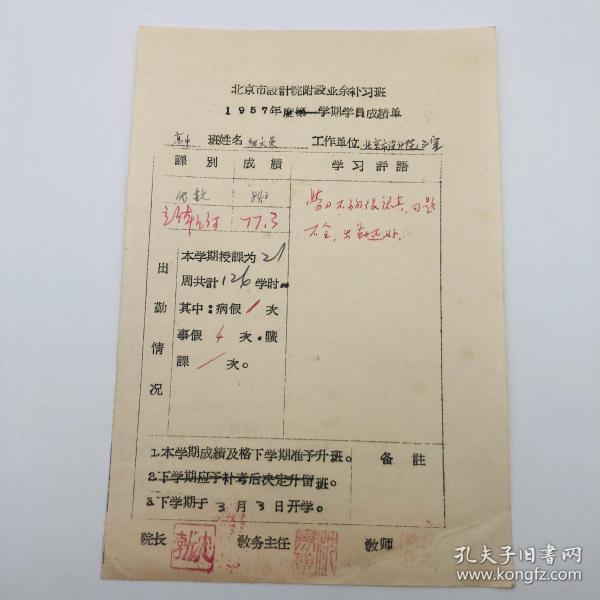 北京市設計院附設业余补习班
1957年度第一学期学員成績单
高中 班姓名 工作单位 北京市设计院
課別 成績 学习評語
代数
立体几何 77.3
学习不够很认真，习题
不全，出勤还好。
出勤情况
本学期授課为21
周共計126学时。
其中：病假1次
事假4次．曠
課/次。
1.本学期成績及格下学期准予升班。
2.下学期应予补考后决定升留班。
3.下学期于3月3日开学。
备註
院长 教务主任 教师
孔夫子旧书网
www.kongfz.com